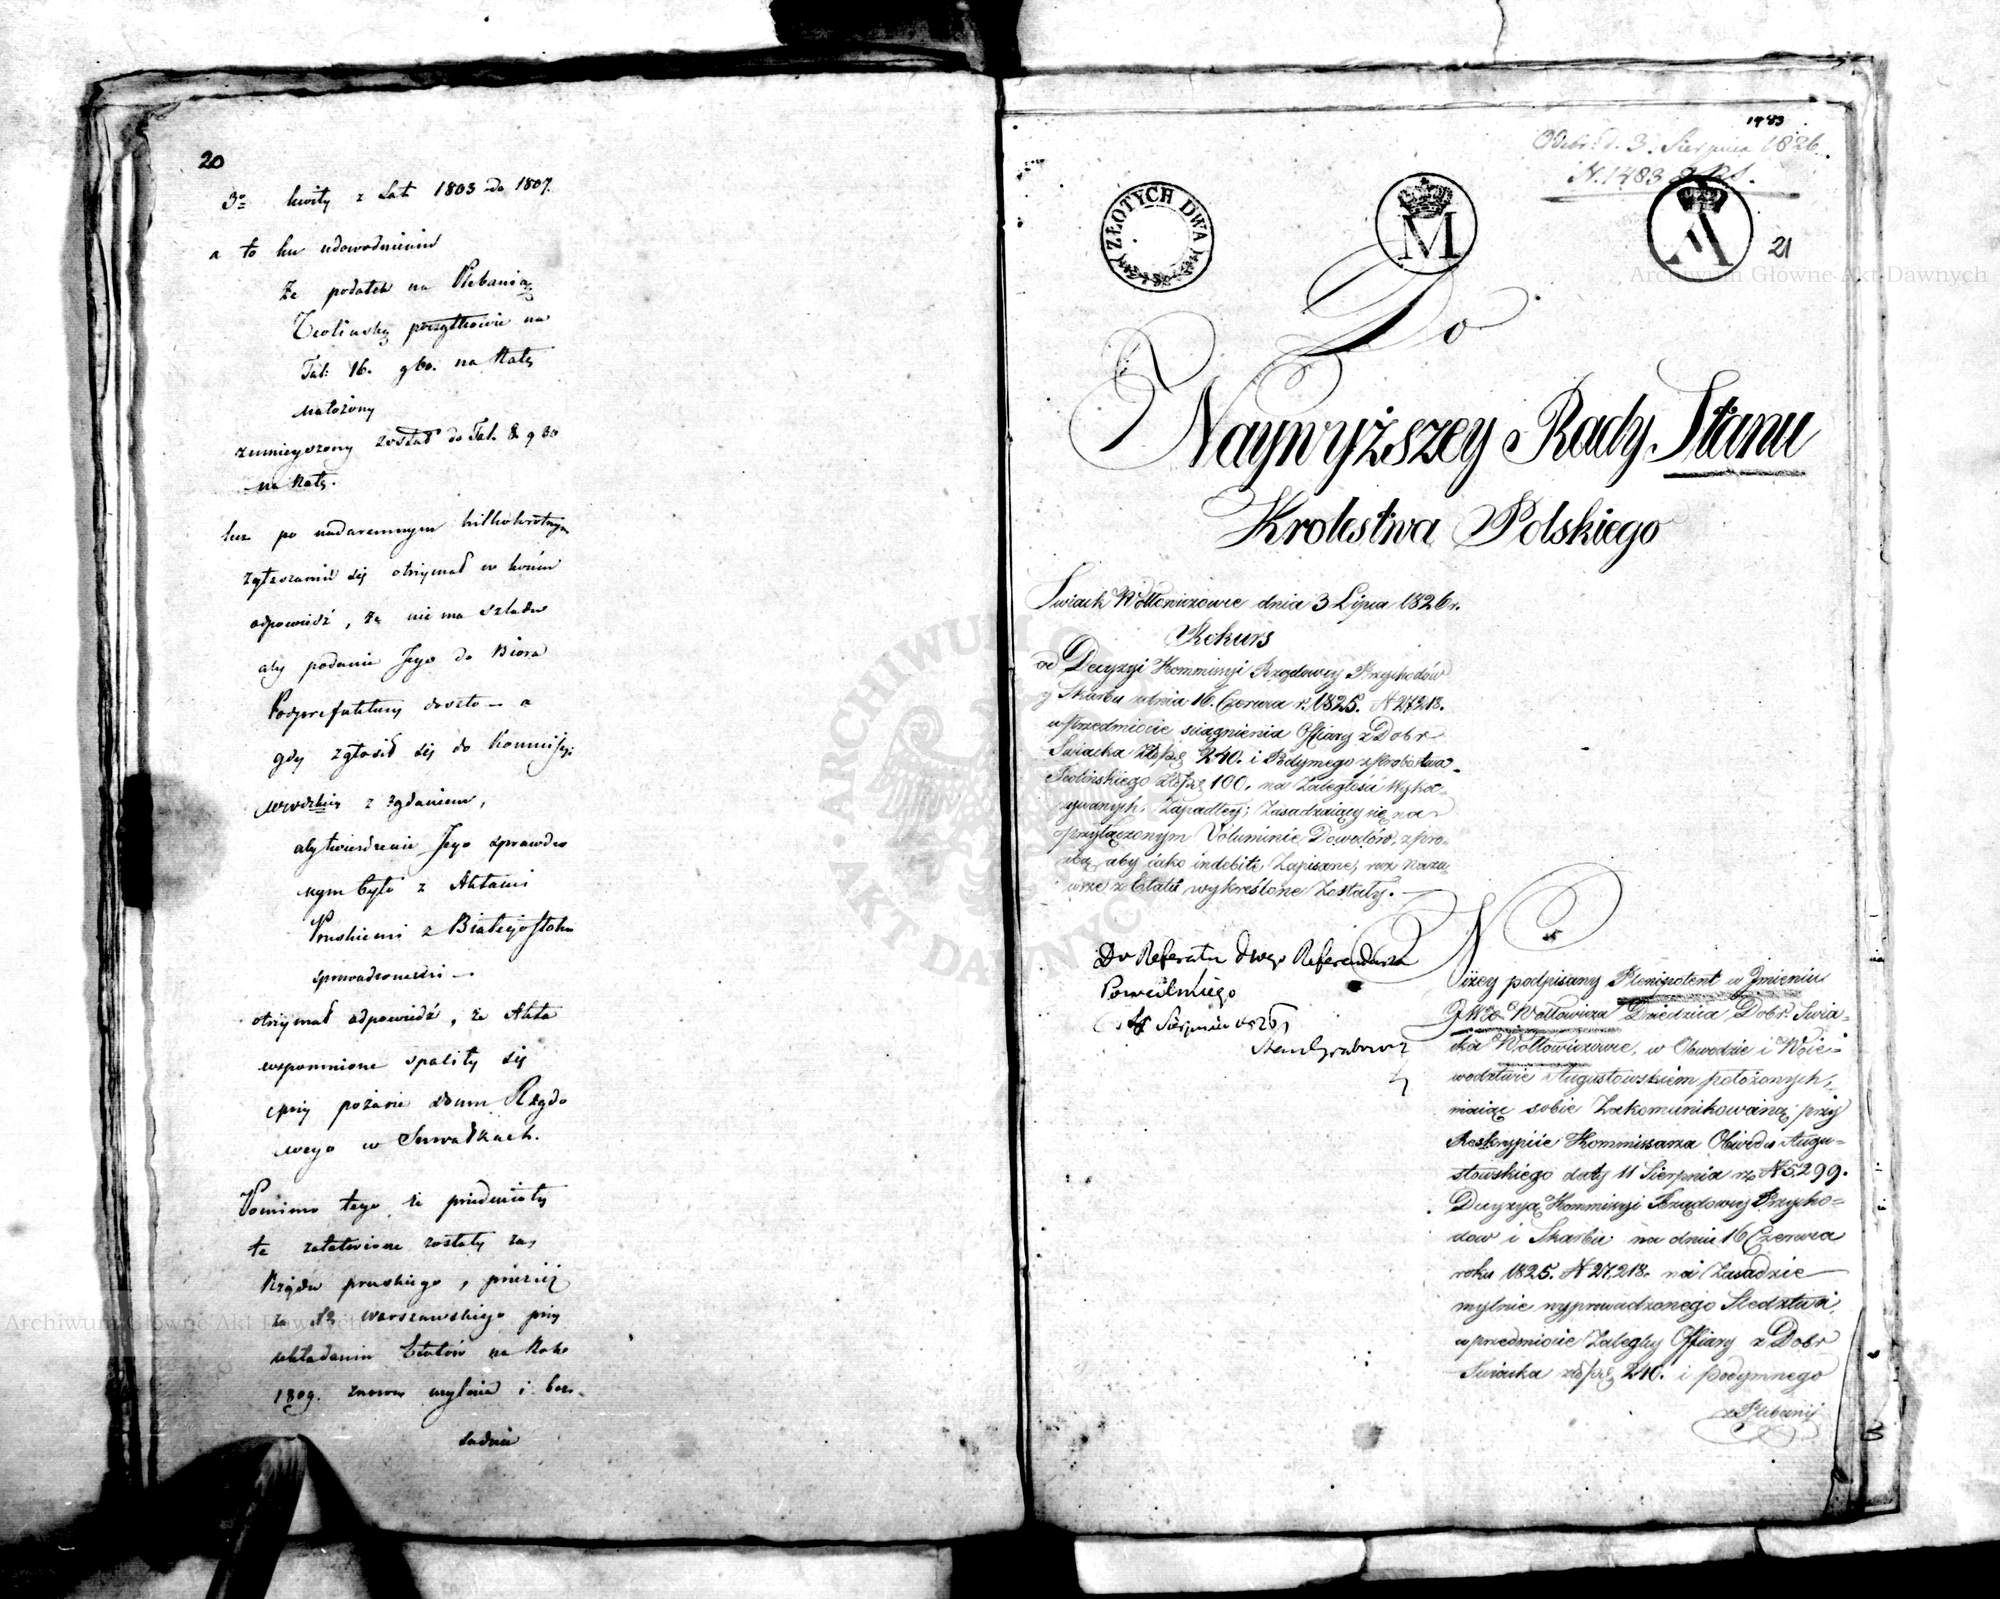 20
3º kwity z Lat 1803 do 1807.
a to ku udowodnieniu
że podatek na Plebanią
Teolinską początkowie na
Tal: 16. gbo: na Ratę
nałożony
zmnieyszony został do Tal. 8. g 60
na Ratę.
lecz po nadaremnym kilkokrotnym
zgłaszaniu się otrzymał w końcu
odpowiedź, że nie ma szladu
aby podanie Jego do Biora
Podprefektury doszło — a
gdy zgłosił się do Kommissyi
z żądaniem,
aby twierdzenie Jego sprawdzo
nym było z Aktami
Pruskiemi z Białegostoku
sprowadzonemi —
otrzymał odpowiedź, że Akta
wspomnione spaliły się
przy pożarze domu Rządo
wego w Suwałkach.
Pomimo tego że przedmioty
te załatwione zostały za
Rządu pruskiego, przecież
za Warszawskiego przy
układaniu Etatów na Rok
1809. znowu mylnie i bez-
sadnie
1483
Odebr: d. 3. Sierpnia 1826.
N. 1483
ZŁOTYCH DWA
M
21
Do
Naywyższey Rady Stanu
Krolestwa Polskiego
Swiack Wołłowiczowie dnia 3 Lipca 1826 r.
Rekurs
od Decyzyi Kommissyi Rządowey Przychodów
y Skarbu z dnia 16. Czerwca r. 1825. N 27218.
w przedmiocie sciągnienia Offiary z Dobr
Swiacka Złp. 240. i Podymego z Probostwa
Teolińskiego Złp. 100. na Zaległość wyka-
zywanych, Zapadłey; Zasadzaiący się na
przyłączonym Voluminie Dowodów, z proź-
bą, aby iako indebite Zapisane, raz na za
wsze z Etatu wykreślone Zostały. —
Do Referatu Jwego Referendarza
Sierpnia 1826
Stan Grabowski
Niżey podpisany Plenipotent w Jmieniu
JWgo Wołłowicza Dziedzica Dobr Swia-
cka Wołłowiczowie, w Obwodzie i Woie-
wodztwie Augustowskiem położonych,
maiąc sobie Zakomunikowaną przy
Reskrypcie Kommissarza Obwodu Augu-
stowskiego daty 11 Sierpnia r. N 5299.
Decyzyą Kommissyi Rządowey Przycho-
dow i Skarbu na dniu 16 Czerwca
roku 1825. N 27,218. na Zasadzie
mylnie wyprowadzonego Sledztwa
w przedmiocie Zaległey Offiary z Dobr
Swiacka złp. 240. i podymnego
z Plebanij